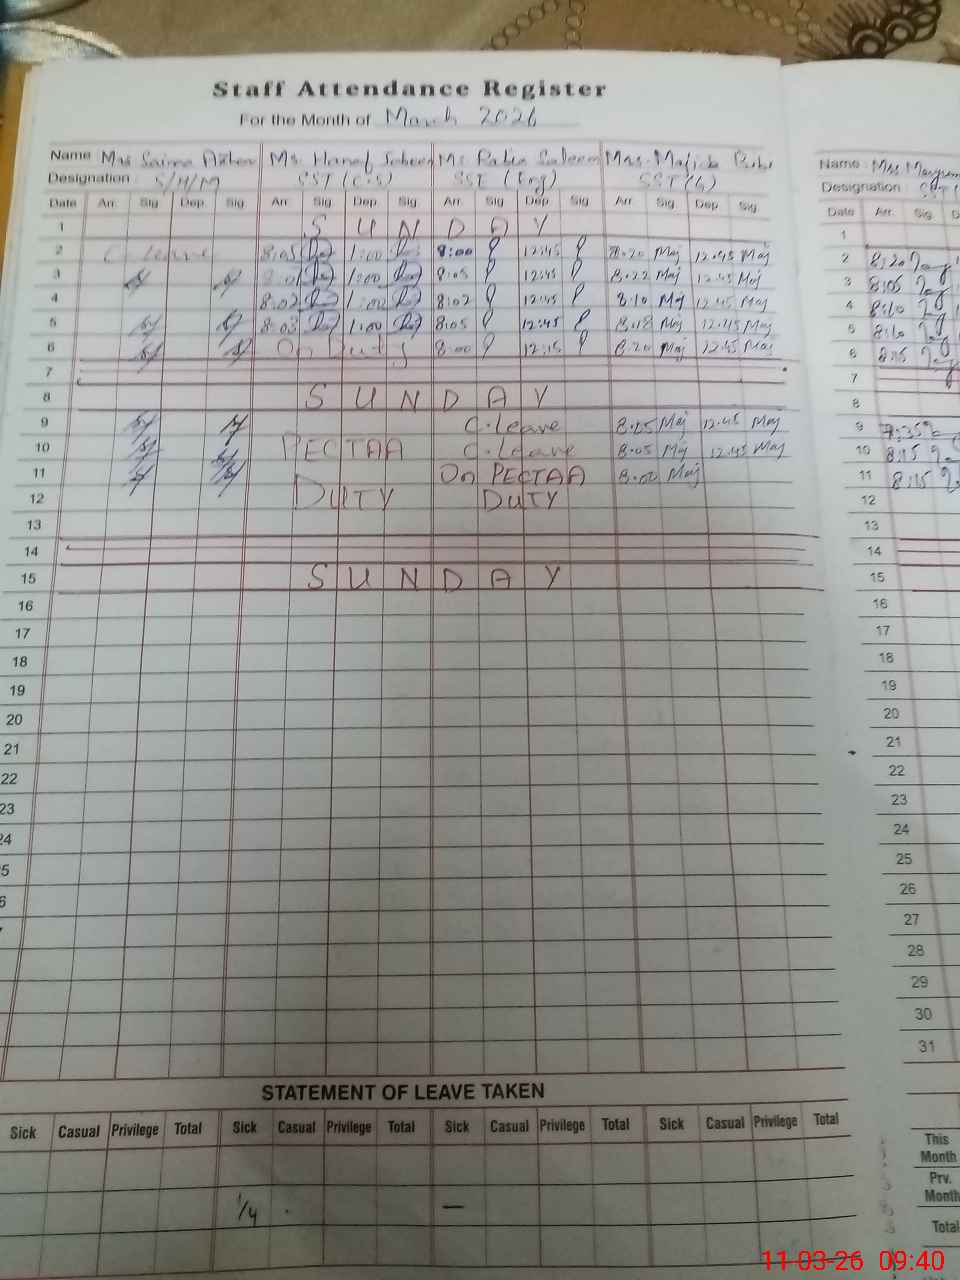 Staff Attendance Register
For the Month of March 2026
Name Mrs Saima Ms. Hanaf Ms. Rabia Saleem Mrs. Majida Name : Mrs
Designation : S/H/M SST (C.S) SSE (Eng) SST(G) Designation :
Date Arr. Sig. Dep. Sig. Arr. Sig. Dep. Sig. Arr. Sig. Dep. Sig. Arr. Sig. Dep. Sig. Date Arr. Sig. D
1 S U N D A Y 1
2 C. leave 8:05 1:00 8:00 12:45 8.20 Maj 12.45 Maj 2 8:20
3 1:00 8:05 12:45 8.22 Maj 12.45 Maj 3 8:05
4 8:02 1:00 8:02 12:45 8.10 Maj 12.45 Maj 4 8:10
5 8:03 1:00 8:05 12:45 8.18 Maj 12.45 Maj 5 8:10
6 On Duty 8:00 8.20 Maj 12.45 Maj 6 8:15
7 7
8 S U N D A Y 8
9 C.leave 8.05 Maj 12.45 Maj 9
10 PECTAA C.leave 8.05 Maj 12.45 Maj 10 8:15
11 On PECTAA 8.00 Maj 11 8:15
12 DUTY DUTY 12
13 13
14 14
15 S U N D A Y 15
16 16
17 17
18 18
19 19
20 20
21 21
22 22
23 23
24 24
5 25
6 26
27
28
29
30
31
STATEMENT OF LEAVE TAKEN
Sick Casual Privilege Total Sick Casual Privilege Total Sick Casual Privilege Total Sick Casual Privilege Total
This Month
Prv. Month
1/4 —
Total
11-03-26 09:40